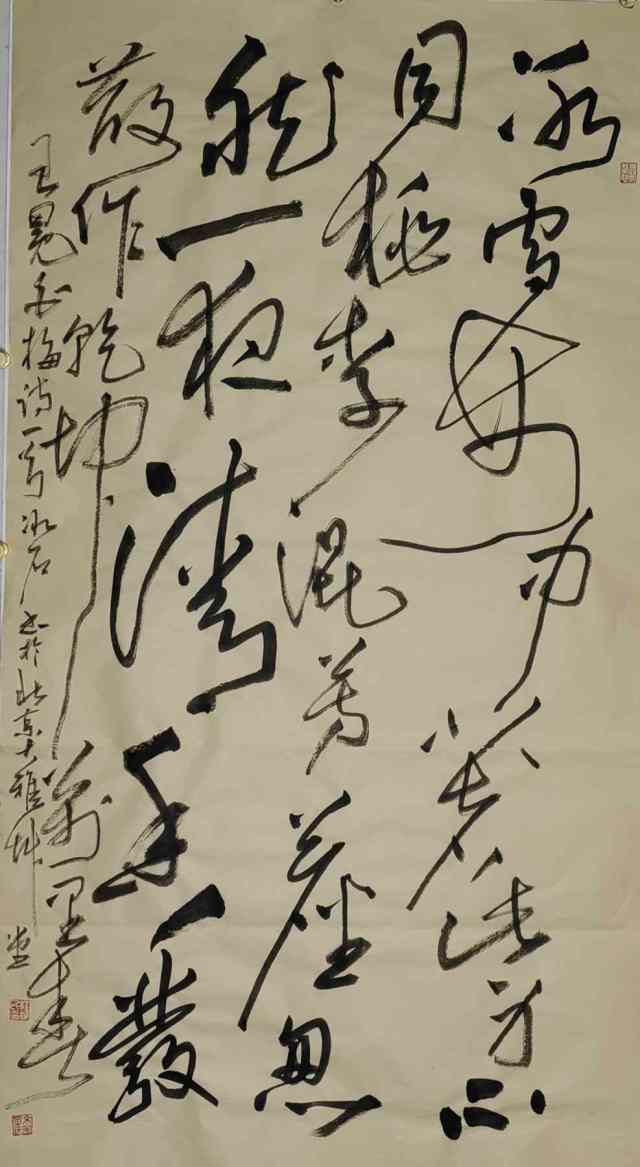 冰雪林中著此身不
同桃李混芳塵忽
然一夜清香發
散作乾坤萬里春
王冕白梅诗一首冰石书於北京大雅堂